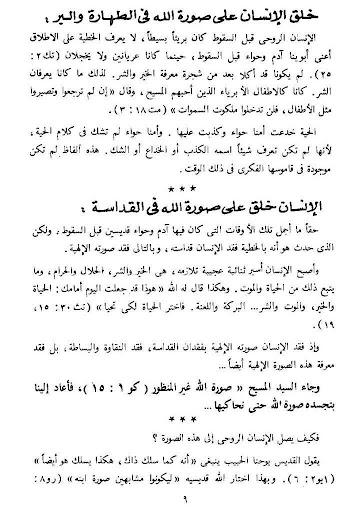 خلق الإنسان على صورة الله فى الطهارة والبر :
الإنسان الروحى قبل السقوط كان بريئاً بسيطاً، لا يعرف الخطية على الاطلاق
أعنى أبوينا آدم وحواء قبل السقوط، حينما كانا عريانين ولا يخجلان (تك٢ :
٢٥). لم يكونا قد أكلا بعد من شجرة معرفة الخير والشر. لذلك ما كانا يعرفان
الشر. كانا كالاطفال الأبرياء الذين أحبهم المسيح، وقال « إن لم ترجعوا وتصيروا
مثل الأطفال، فلن تدخلوا ملكوت السموات » (مت١٨ : ٣).
الحية خدعت أمنا حواء وكذبت عليها . وأمنا حواء لم تشك فى كلام الحية،
لأنها لم تكن تعرف شيئاً اسمه الكذب أو الخداع أو الشك. هذه ألفاظ لم تكن
موجودة فى قاموسها الفكرى فى ذلك الوقت.
* * *
الإنسان خلق على صورة الله فى القداسة :
حقاً ما أجمل تلك الأوقات التى كان فيها آدم وحواء قديسين قبل السقوط، ولكن
الذى حدث هو أنه بالخطية فقد الإنسان قداسته، وبالتالى فقد صورته الإلهية.
وأصبح الإنسان أسير ثنائية عجيبة تلازمه، هى الخير والشر، الحلال والحرام، وما
ينبع ذلك من الحياة والموت. وهكذا قال له الله «هوذا قد جعلت اليوم أمامك: الحياة
والخير، والموت والشر... البركة واللعنة. فاختر الحياة لكى تحيا» (تث٣٠ : ١٥،
١٩).
وإذ فقد الإنسان صورته الإلهية بفقدان القداسة، فقد النقاوة والبساطة، بل فقد
معرفة هذه الصورة الإلهية أيضاً...
وجاء السيد المسيح « صورة الله غير المنظور ( كو ١ : ١٥ )، فأعاد إلينا
بتجسده صورة الله حتى نحاكيها ...
* * *
فكيف يصل الإنسان الروحى إلى هذه الصورة ؟
يقول القديس يوحنا الحبيب ينبغى «أنه كما سلك ذاك، هكذا يسلك هو أيضاً»
(١يو٢ : ٦). وبهذا اختار الله قديسيه «ليكونوا مشابهين صورة ابنه» (رو٨ :
٩